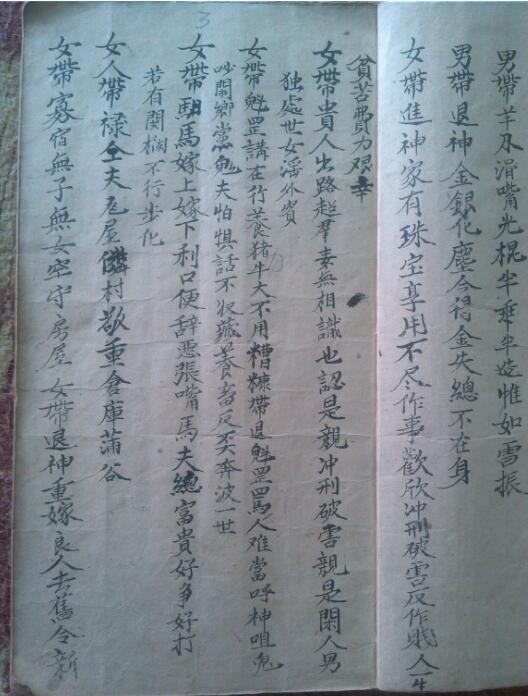 男帶羊刃滑嘴光棍半乘半 惟如雪振
男帶退神金銀化塵今得金失總不在身
女帶進神家有珠宝享用不尽作事歡欣冲刑破害反作贱人一生
貧苦費力艰辛
女帶貴人出路超羣素無相識也認是親冲刑破害親是閑人男
独處世女淫外賓
女帶魁罡講在行養猪牛大不用糟糠帶退魁罡罵人难當呼神咀鬼
吵鬧鄉党 夫怕惧話不 藏養畜反 奔波一世
女帶馹馬嫁上嫁下利口便辞悪張嘴馬夫總富貴好争好打
若有関欄不行步化
女人帶禄 夫 屋隣村敬重倉庫蒲谷
女帶寡宿無子無女空守房屋女帶退神重嫁良人去舊合新
3